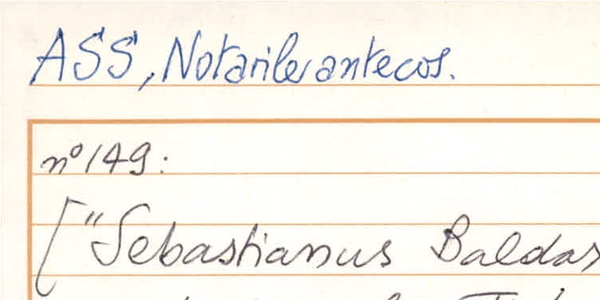 ASS, Notarile antecos.
nº 149:
["Sebastianus Baldas